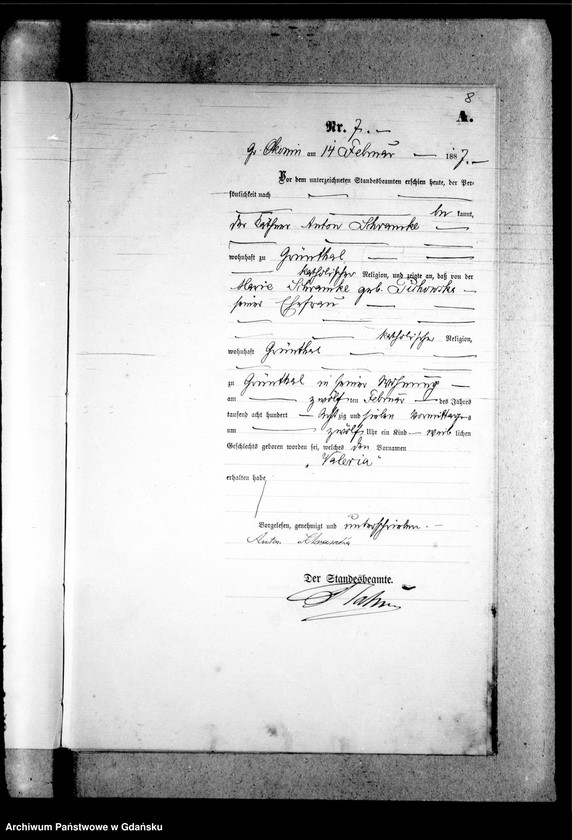 8
A.
Nr. 7.
Gr. Okonin am 14 Februar 1887.
Vor dem unterzeichneten Standesbeamten erschien heute, der Per-
sönlichkeit nach
be kannt,
der Käthner Anton Schramke
wohnhaft zu Grünthal
katholischer Religion, und zeigte an, daß von der
Marie Schramke geb.
seiner Ehefrau
katholischer Religion,
wohnhaft Grünthal
zu Grünthal in seiner Wohnung
am zwölf ten Februar des Jahres
tausend acht hundert acht zig und sieben Vormittags
um zwölf Uhr ein Kind weib lichen
Geschlechts geboren worden sei, welches den Vornamen
„Valeria"
erhalten habe
Vorgelesen, genehmigt und unterschrieben.
Anton
Der Standesbeamte.
Archiwum Państwowe w Gdańsku